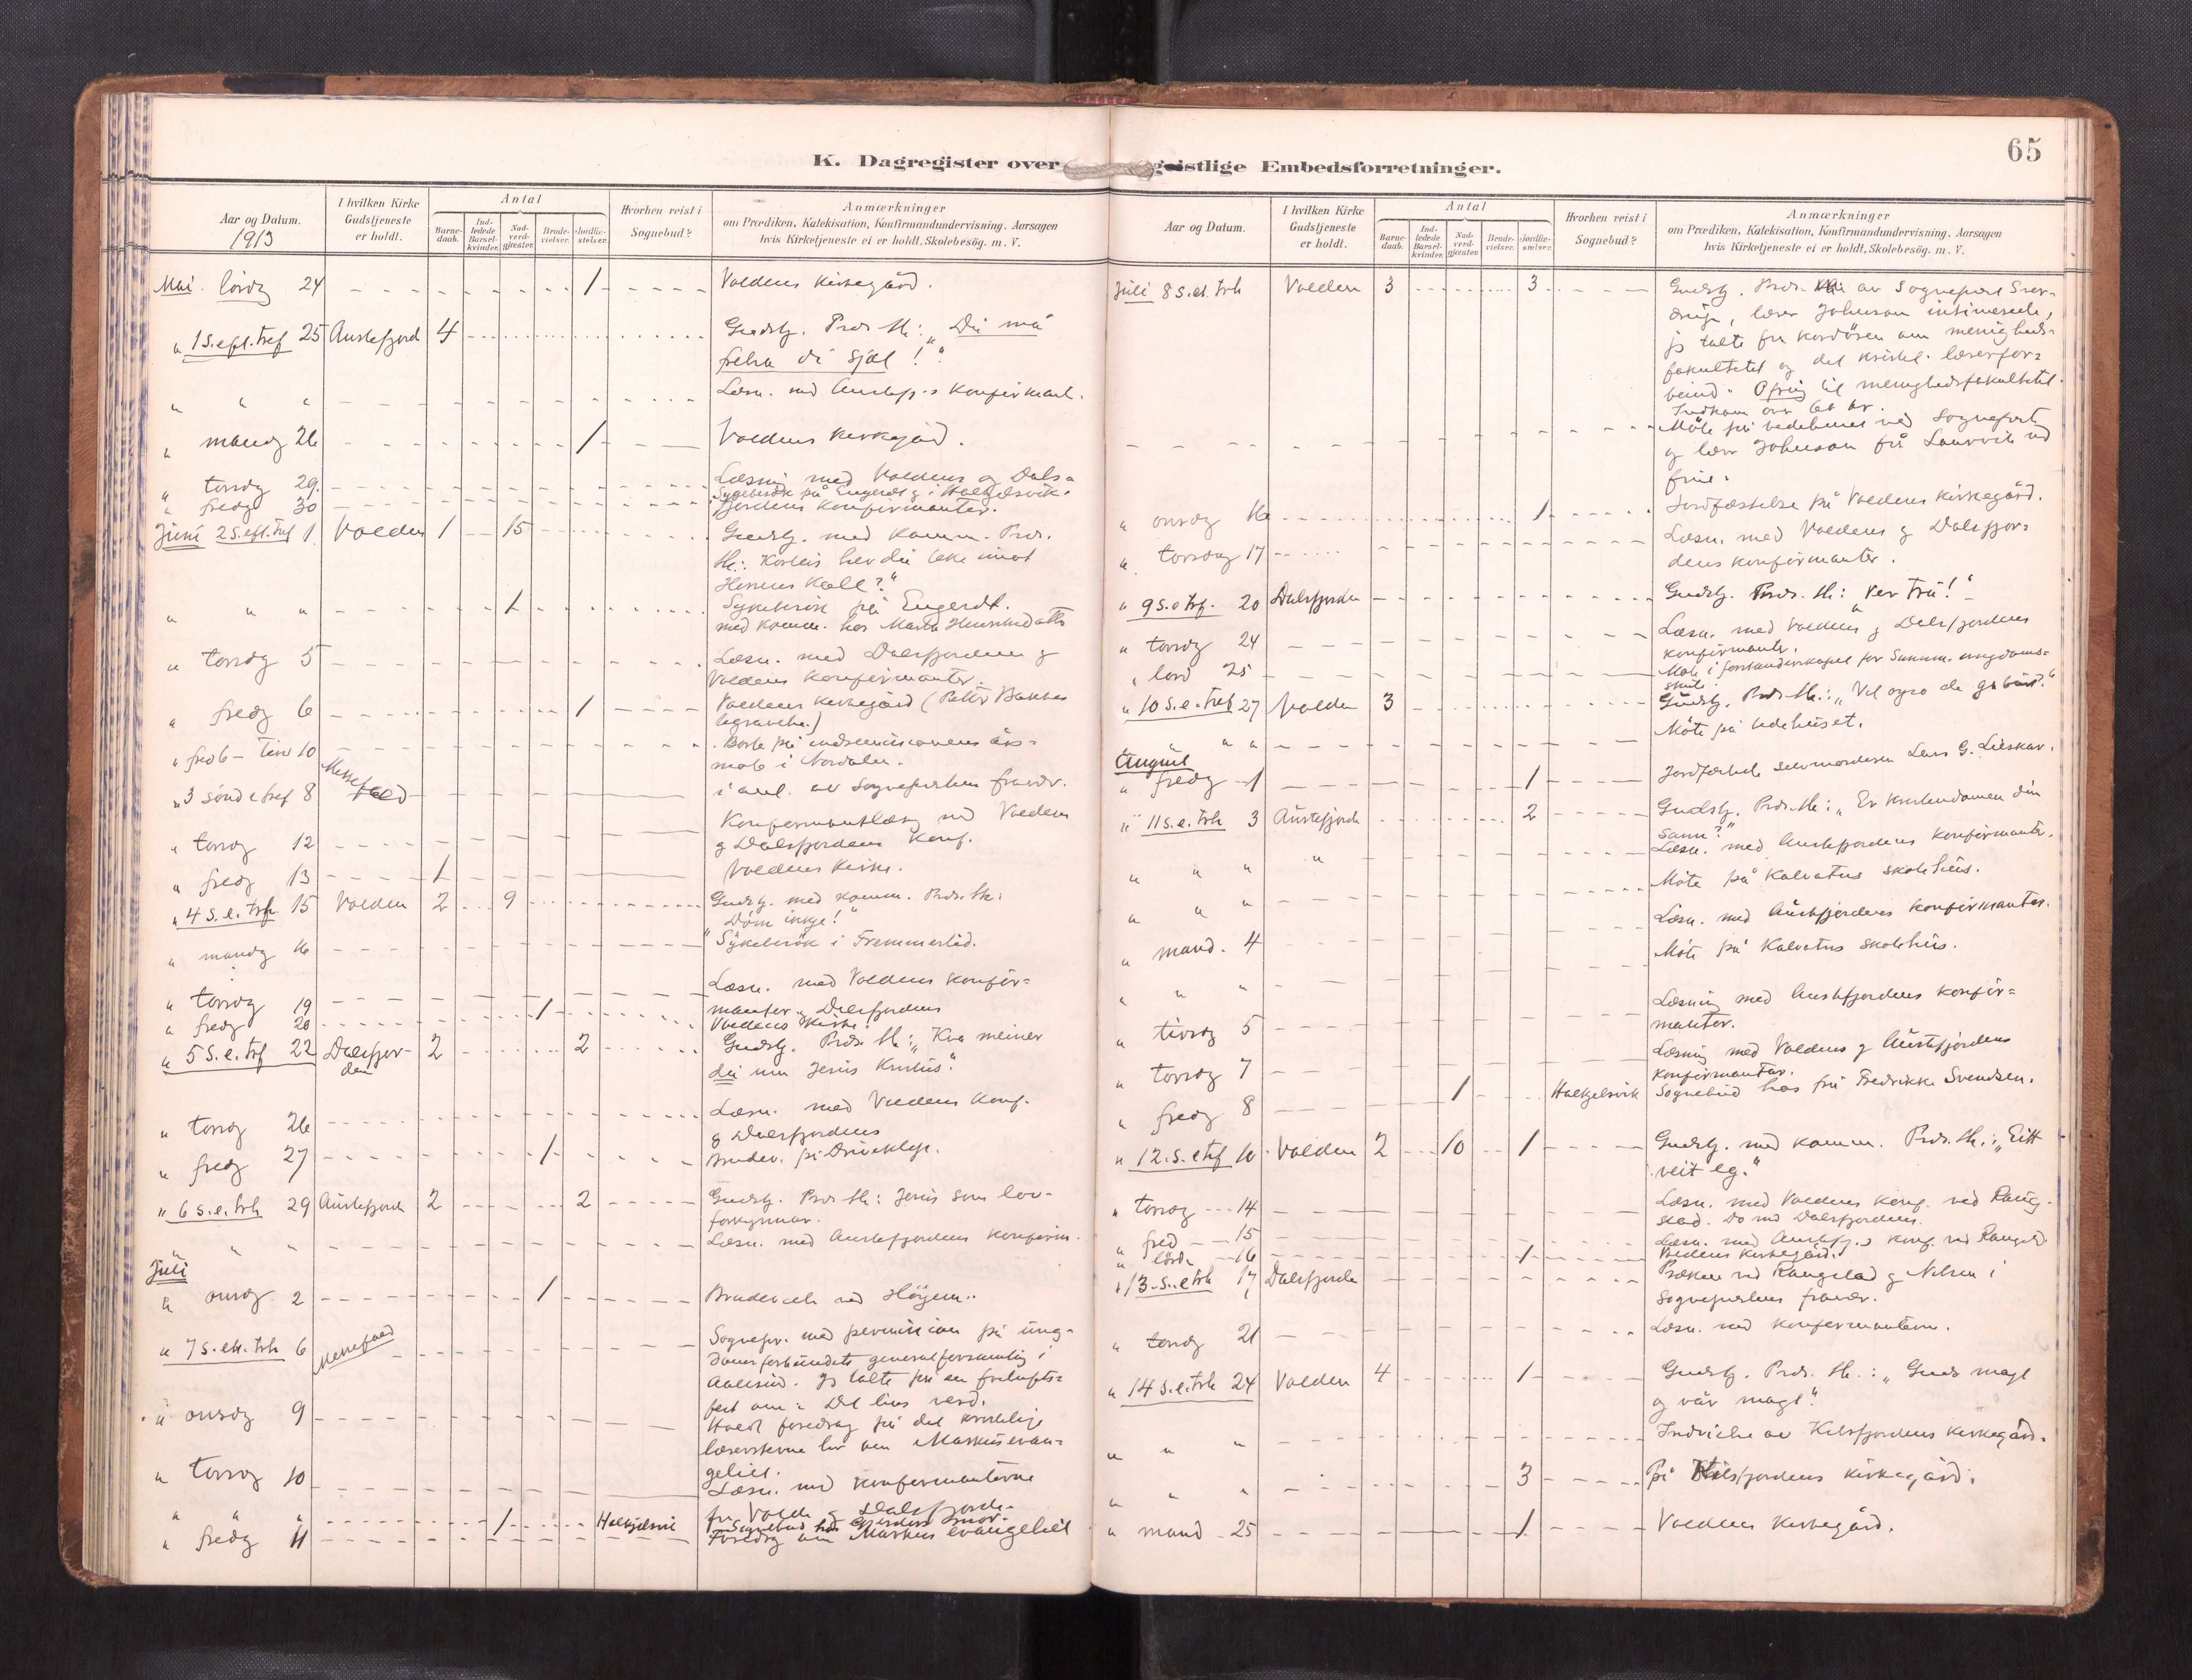 65
K. Dagregister over geistlige Embedsforretninger.
Aar og Datum.
1913
I hvilken Kirke Gudstjeneste er holdt.
Antal
Barnedaab.
Indledede Barselkvinder.
Nadverdgjæster.
Brudevielser.
Jordfæstelser.
Hvorhen reist i Sognebud?
Anmærkninger
om Prædiken, Katekisation, Konfirmandundervisning. Aarsagen
hvis Kirketjeneste ei er holdt. Skolebesøg. m. V.
Mai lördg 24 1 Voldens kirkegård.
" 1 S. eft. tref 25 Austefjord 4 Gudstj. Præd. th: "Du må
frelsa di sjæl!"
" " " Læsn. med Austefj.s konfirmant.
" mandg 26 1 Voldens kirkegård.
" torsdg 29. Læsning med Voldens og Dals-
" fredg 30 Sygebesök på Engeset og i Halkjelsvik.
fjordens konfirmanter.
Juni 2 S. eft. tref 1 Volden 1 15 Gudstj. med komm. Præd.
th: Korleis har du teke imot
Herrens kall?"
" " " 1 Sykebesök på Engeset.
med komm. hos
" torsdg 5 Læsn. med Dalsfjordens og
Voldens konfirmanter.
" fredg 6 1 Voldens kirkegård (Peter Bakkes
begravelse.)
" fred 6 – tirs 10 Borte på indremissionens års-
möte i Nordalen.
" 3 sönd e tref 8 Messefald i anl. av Sogneprestens fravær.
" torsdg 12 Konfirmantlæsn med Voldens
og Dalsfjordens konf.
" fredg 13 1 Voldens kirke.
" 4 S. e. tref 15 Volden 2 9 Gudstj. med komm. Præd. th:
"Döm ikkje!"
" mandg 16 Sykebesök i Fremmerlid.
" torsdg 19 Læsn. med Voldens konfir-
manter og Dalsfjordens
" fredg 20 1 Voldens kirke.
" 5 S. e. tref 22 Dalsfjorden 2 2 Gudstj. Præd. th: "Kva meiner
du um Jesus Kristus".
" torsdg 26 Læsn. med Voldens konf.
og Dalsfjordens
" fredg 27 1 Brudev. på
" 6 S. e. trh 29 Austefjord 2 2 Gudstj. Præd. th: Jesus som lov-
forkynnar.
" " " Læsn. med Austefjordens konfirm.
Juli
" onsdg 2 1 Brudevielse ved
" 7 S. eft. trh 6 Messefald Sognepr. med permission på ung-
domsforbundets generalforsamling i
Aalesund. Jeg talte på en frilufts-
fest om: Det livs verd.
" onsdg 9 Holdt foredrag på det kristelige
læserstevne her om Markusevan-
geliet.
" torsdg 10 Læsn. med konfirmanterne
fra Volden og Dalsfjorden.
" " " 1 Halkjelsvik Sognebud hos
" fredg 11 Foredrag om Markus evangeliet
Aar og Datum.
I hvilken Kirke Gudstjeneste er holdt.
Antal
Barnedaab.
Indledede Barselkvinder.
Nadverdgjæster.
Brudevielser.
Jordfæstelser.
Hvorhen reist i Sognebud?
Anmærkninger
om Prædiken, Katekisation, Konfirmandundervisning, Aarsagen
hvis Kirketjeneste ei er holdt, Skolebesøg. m. V.
Juli 8 S. et. trh Volden 3 3 Gudstj. Præd. av Sogneprest
lærer Johnson intimerede,
jeg talte fra kordören om menigheds-
fakultetet og det kristel. lærerfor-
bund. Ofring til menighedsfakultetet.
Indkom over 60 kr.
Möte på bedehuset ved Sogneprest
og lærer Johnson frå Laurvik med
frue.
" onsdg 16 1 Jordfæstelse på Voldens kirkegård.
" torsdag 17 Læsn. med Voldens og Dalsfjor-
dens konfirmanter.
" 9 S. e tref. 20 Dalsfjorden Gudstj. Præd. th: "Ver tru!"
" torsdg 24 Læsn. med Voldens og Dalsfjordens
konfirmanter.
" lørd 25 Möte i forstanderskapet for Sunnm. ungdoms-
skule.
" 10 S. e. tref 27 Volden 3 Gudstj. Præd. th:
" " Möte på bedehuset.
August
" fredg 1 1 Jordfæstede selvmorderen Lars G. Lieskar.
" 11 S. e. trh 3 Austefjorden 2 Gudstj. Præd. th: "Er kristendomen din
sann?"
" " " Læsn. med Austefjordens konfirmanter.
" " " Möte på Kalvatns skolehus.
" mand. 4 Læsn. med Austefjordens konfirmanter.
" " " Möte på Kalvatns skolehus.
" tirsdg 5 Læsning med Austefjordens konfir-
manter.
" torsdg 7 Læsning med Voldens og Austefjordens
konfirmanter.
" fredg 8 1 Halkjelsvik Sognebud hos fru Fredrikke Svendsen.
" 12. S. e tref 10 Volden 2 10 1 Gudstj. med komm. Præd. th: "Eitt
veit eg."
" torsdg 14 Læsn. med Voldens konf. ved Raug-
stad. Do med Dalsfjordens.
" fred 15 Læsn. med Austefj.s konf. ved Raugst.
" lörd. 16 1 Voldens kirkegård.
" 13. S. e trh 17 Dalsfjorden Præken ved Raugstad og Nilsen i
Sogneprestens fravær.
" torsdg 21 Læsn. med konfirmantern.
" 14 S. e. trh 24 Volden 4 1 Gudstj. Præd. th.: "Guds magt
og vår magt".
" " " Indvielse av Kilsfjordens kirkegård.
" " " 3 På Kilsfjordens kirkegård.
" mand 25 1 Voldens kirkegård.